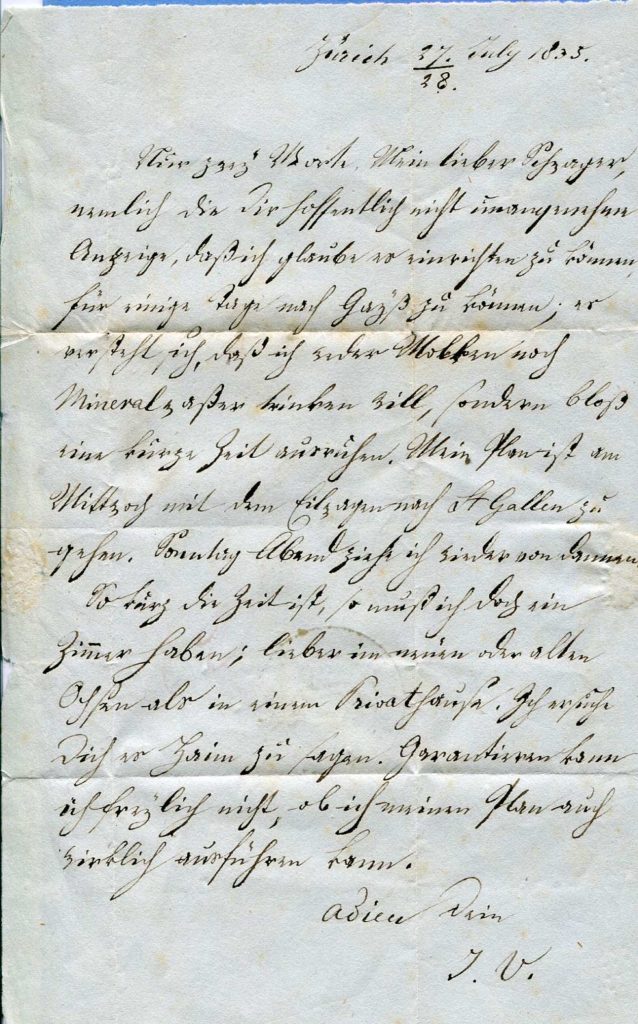 Zürich 27. July 1835.
28.
Nur zwey Worte, Mein lieber Schwager,
nemlich die Dir hoffentlich nicht unangenehme
Anzeige, daß ich glaube es einrichten zu können,
für einige Tage nach Gayß zu können; es
versteht sich, daß ich weder Molken noch
Mineralwaßer trinken will, sondern bloß
eine kurze Zeit ausruhen. Mein Plan ist am
Mittwoch mit dem Eilwagen nach St Gallen zu
gehen. Sonntag Abend ziehe ich wieder von dannen
So kurz die Zeit ist, so muß ich doch ein
Zimmer haben; lieber im neuen oder alten
Ochsen als in einem Privathause. Ich ersuche
Dich es Haim zu sagen. Garantieren kann
ich freylich nicht, ob ich meinen Plan auch
wirklich ausführen kann.
adieu Dein
J. V.